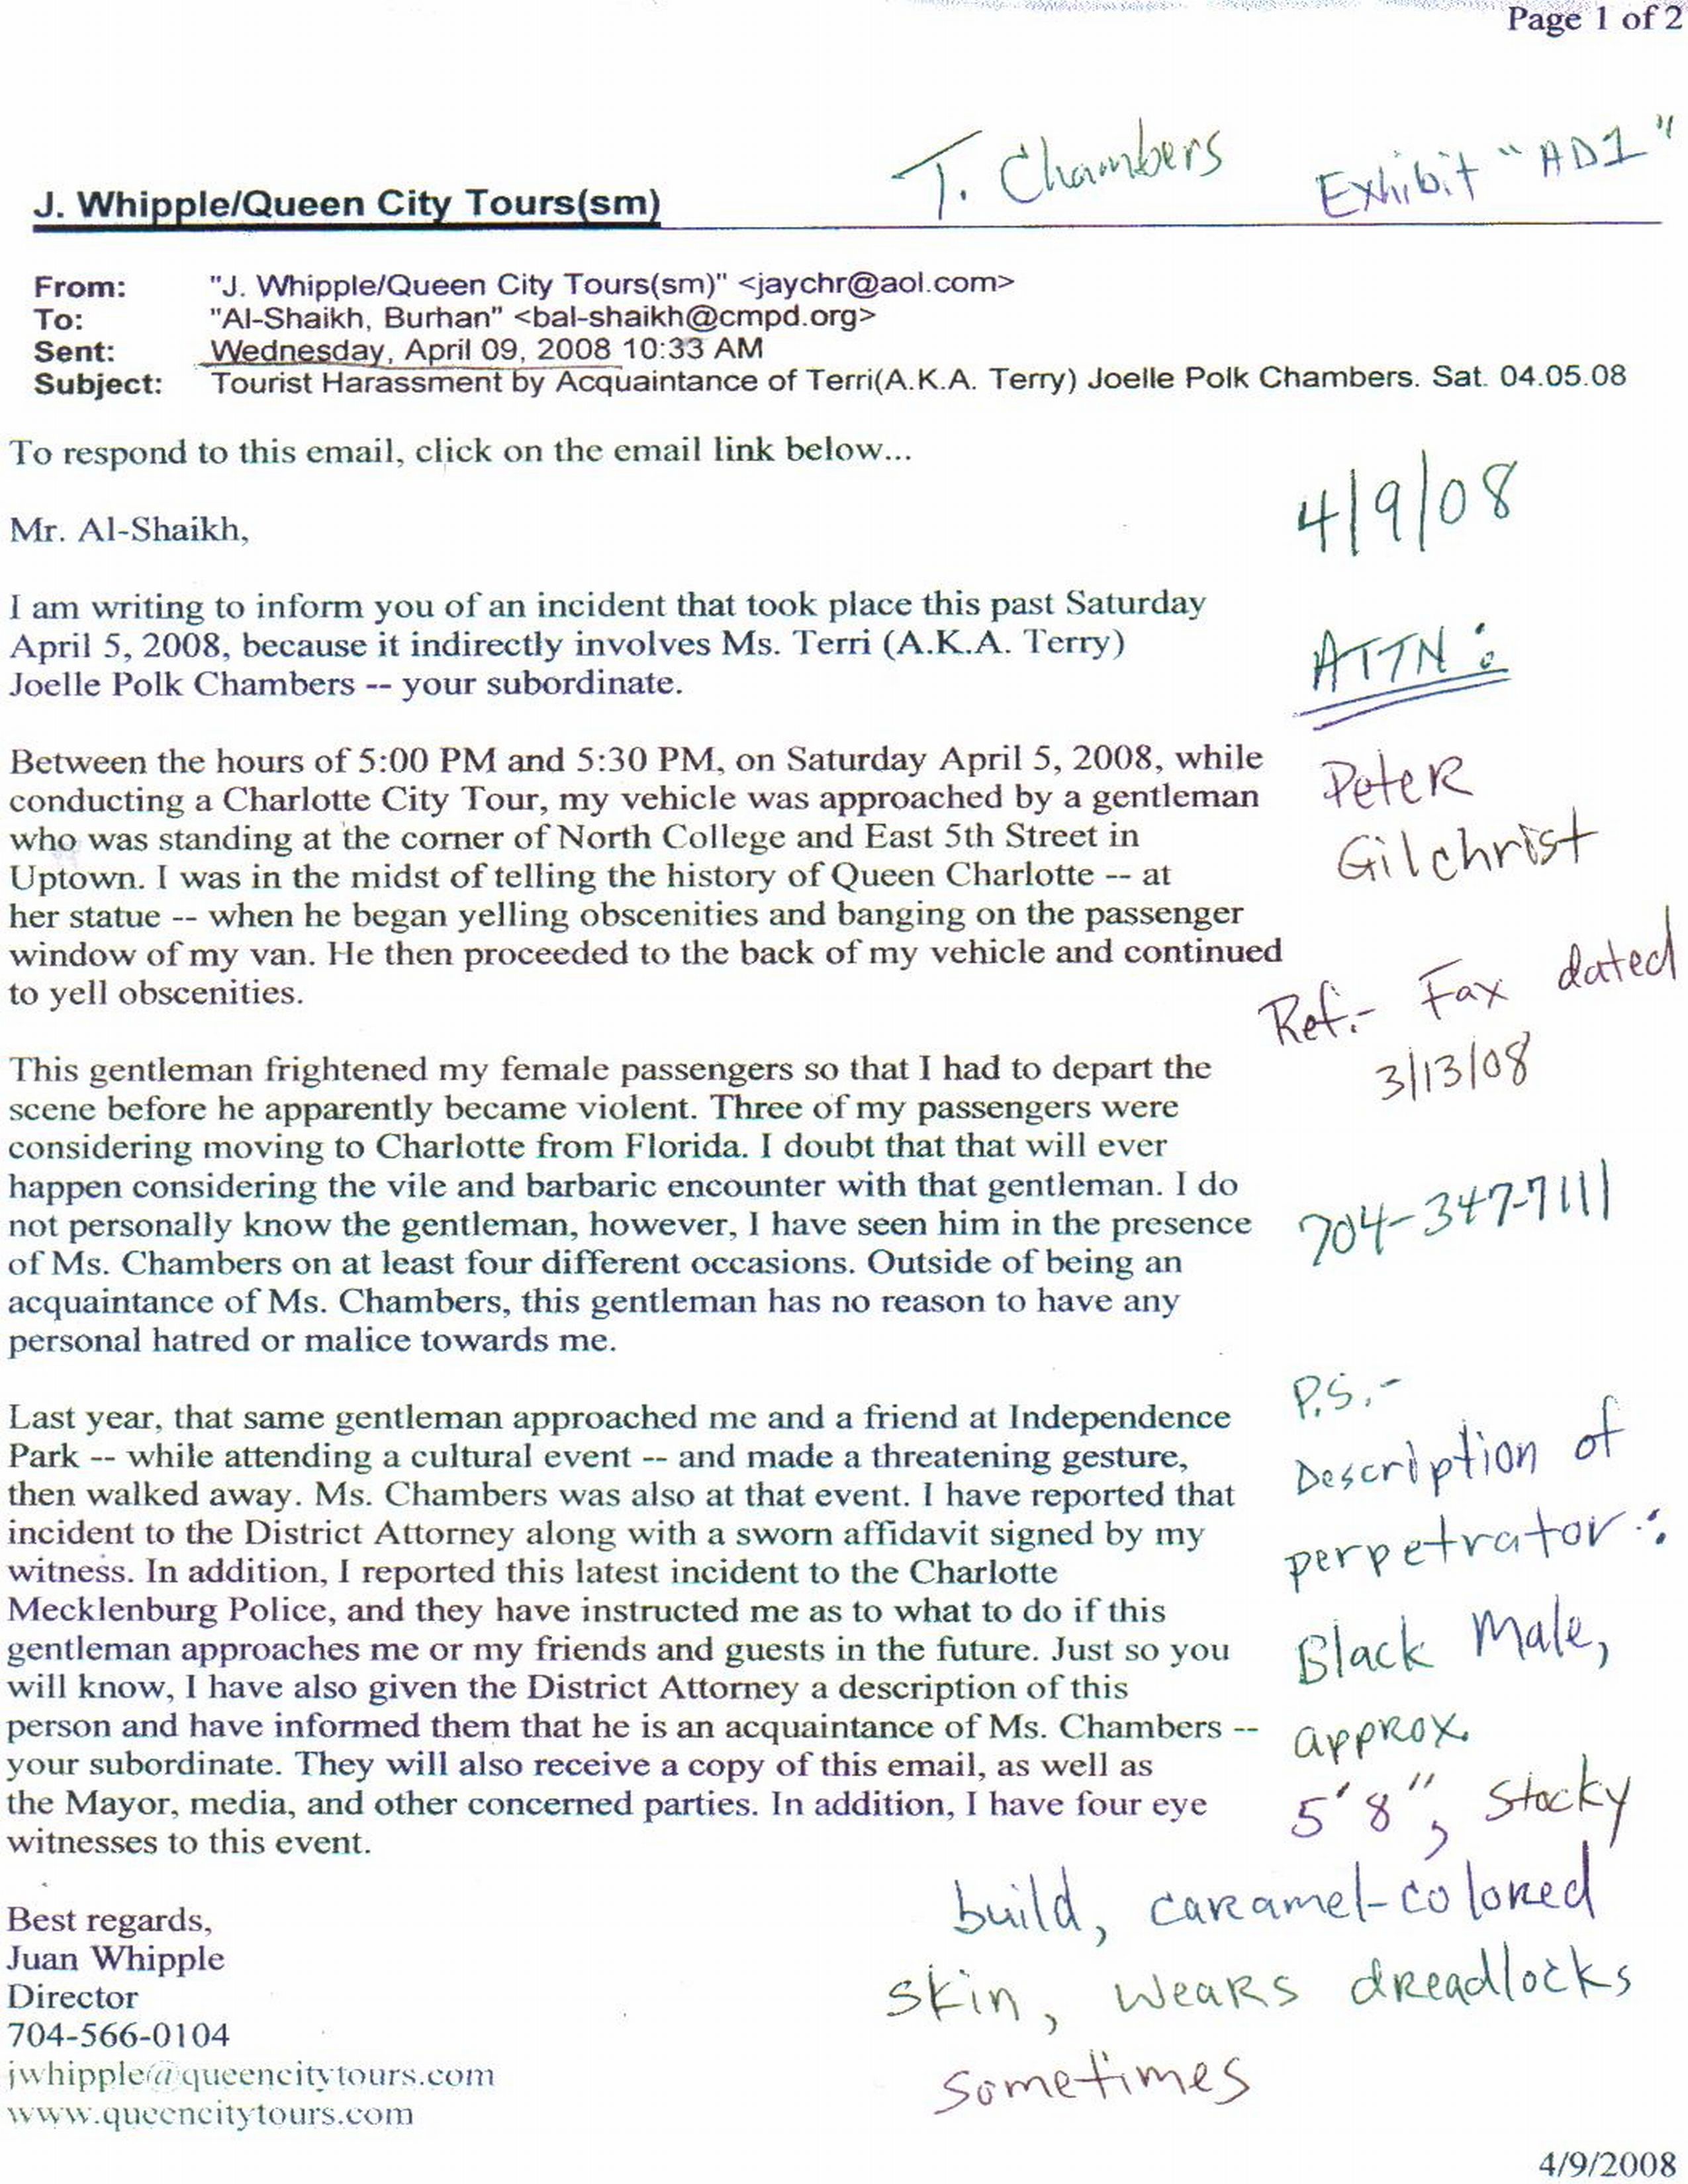 Page 1 of 2
T. Chambers Exhibit "AD1"
J. Whipple/Queen City Tours(sm)
From: "J. Whipple/Queen City Tours(sm)" <jaychr@aol.com>
To: "Al-Shaikh, Burhan" <bal-shaikh@cmpd.org>
Sent: Wednesday, April 09, 2008 10:33 AM
Subject: Tourist Harassment by Acquaintance of Terri(A.K.A. Terry) Joelle Polk Chambers. Sat. 04.05.08
To respond to this email, click on the email link below...
Mr. Al-Shaikh,
I am writing to inform you of an incident that took place this past Saturday
April 5, 2008, because it indirectly involves Ms. Terri (A.K.A. Terry)
Joelle Polk Chambers -- your subordinate.
Between the hours of 5:00 PM and 5:30 PM, on Saturday April 5, 2008, while
conducting a Charlotte City Tour, my vehicle was approached by a gentleman
who was standing at the corner of North College and East 5th Street in
Uptown. I was in the midst of telling the history of Queen Charlotte -- at
her statue -- when he began yelling obscenities and banging on the passenger
window of my van. He then proceeded to the back of my vehicle and continued
to yell obscenities.
This gentleman frightened my female passengers so that I had to depart the
scene before he apparently became violent. Three of my passengers were
considering moving to Charlotte from Florida. I doubt that that will ever
happen considering the vile and barbaric encounter with that gentleman. I do
not personally know the gentleman, however, I have seen him in the presence
of Ms. Chambers on at least four different occasions. Outside of being an
acquaintance of Ms. Chambers, this gentleman has no reason to have any
personal hatred or malice towards me.
Last year, that same gentleman approached me and a friend at Independence
Park -- while attending a cultural event -- and made a threatening gesture,
then walked away. Ms. Chambers was also at that event. I have reported that
incident to the District Attorney along with a sworn affidavit signed by my
witness. In addition, I reported this latest incident to the Charlotte
Mecklenburg Police, and they have instructed me as to what to do if this
gentleman approaches me or my friends and guests in the future. Just so you
will know, I have also given the District Attorney a description of this
person and have informed them that he is an acquaintance of Ms. Chambers --
your subordinate. They will also receive a copy of this email, as well as
the Mayor, media, and other concerned parties. In addition, I have four eye
witnesses to this event.
Best regards,
Juan Whipple
Director
704-566-0104
jwhipple@queencitytours.com
www.queencitytours.com
4/9/08
ATTN:
Peter
Gilchrist
Ref.- Fax dated
3/13/08
704-347-7111
P.S.-
Description of
perpetrator:
Black Male,
approx.
5'8", stocky
build, caramel-colored
skin, wears dreadlocks
sometimes
4/9/2008